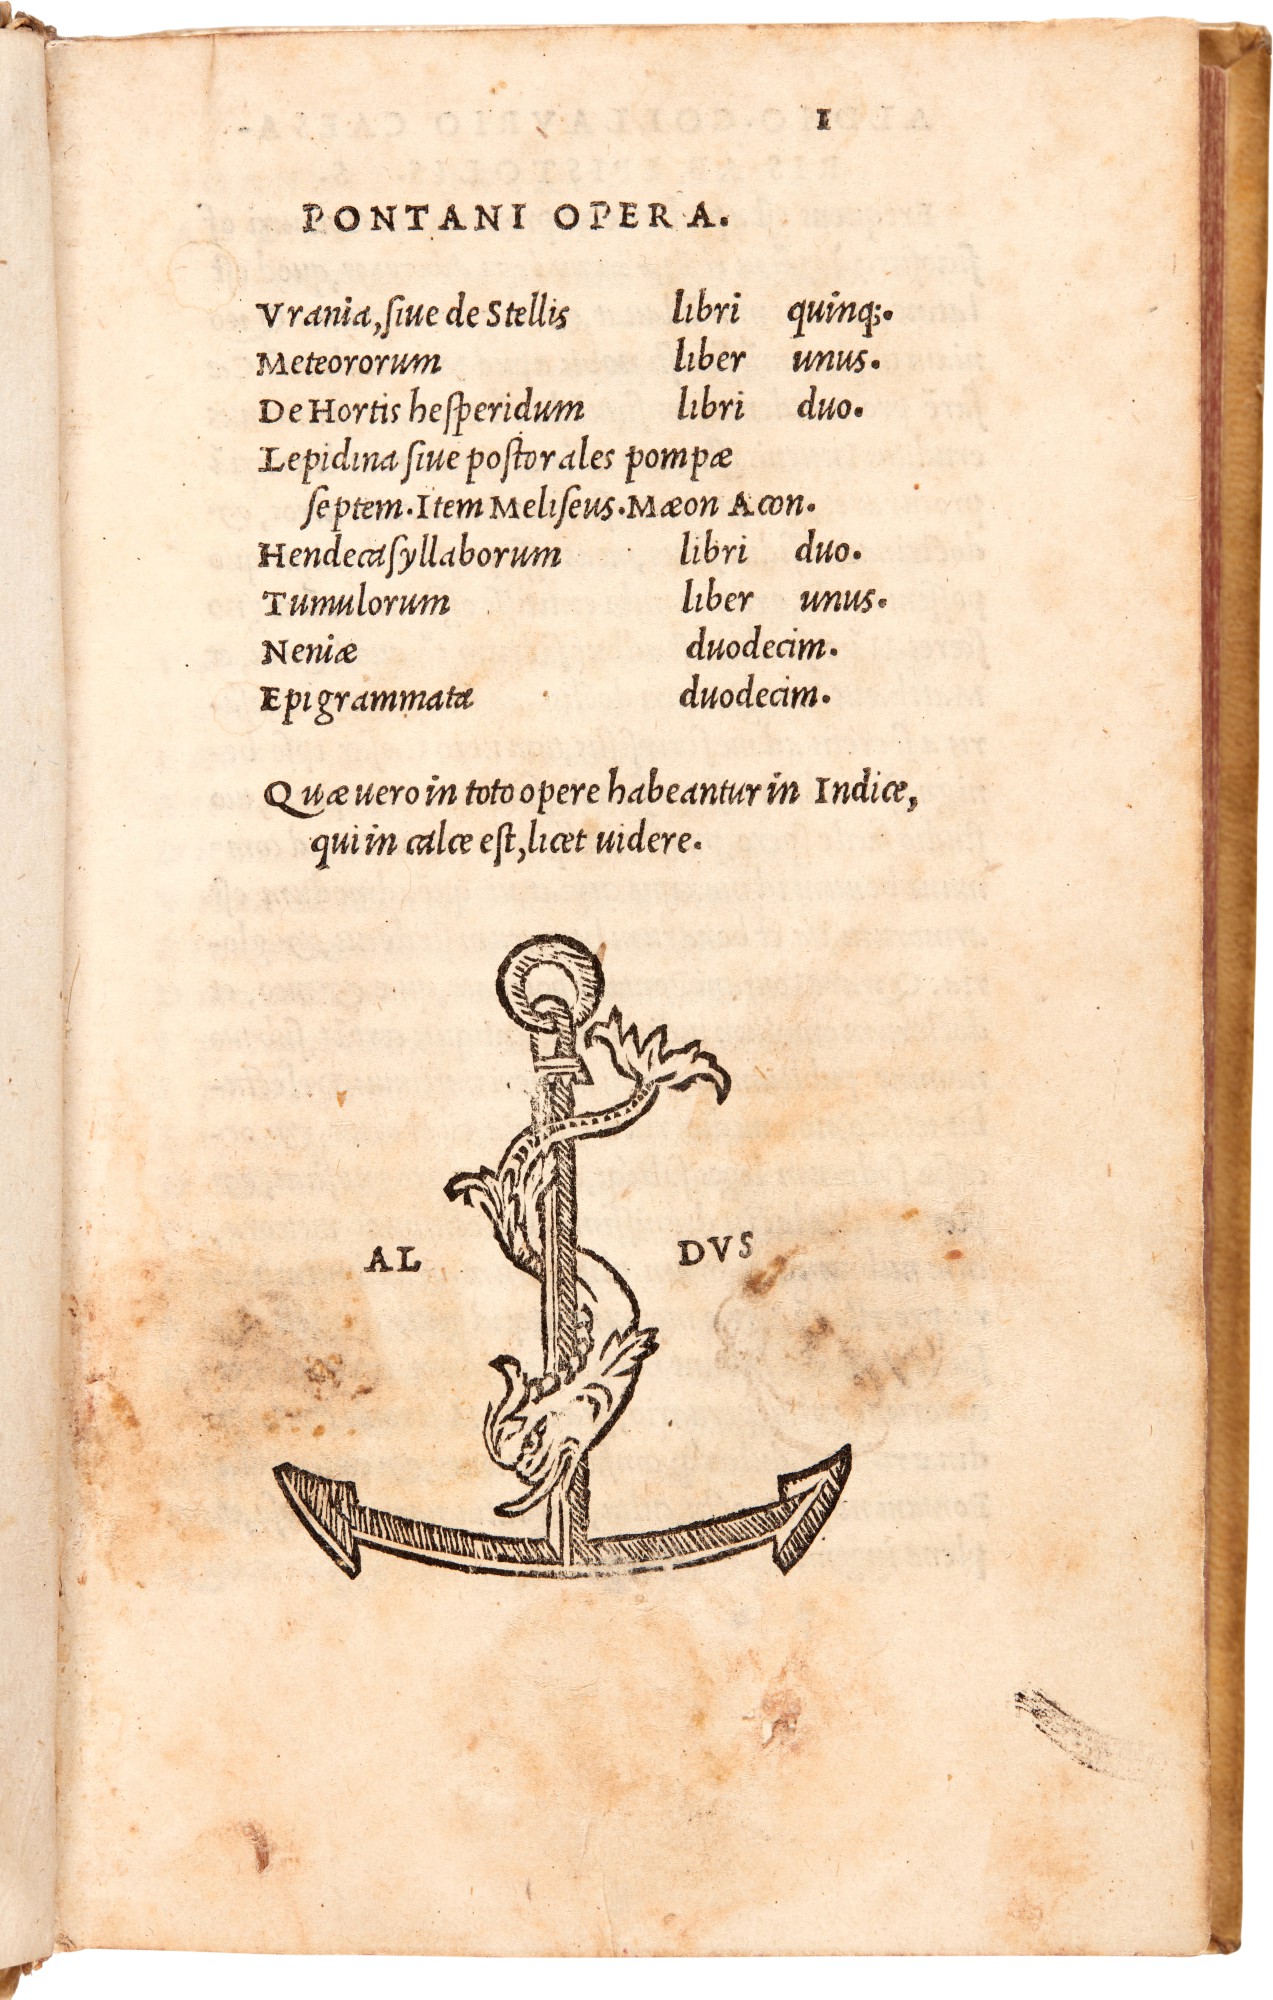 I
PONTANI OPERA.
Vrania, ſiue de Stellis libri quinq;.
Meteororum liber unus.
De Hortis heſperidum libri duo.
Lepidina ſiue poſtorales pompæ
ſeptem. Item Meliſeus. Mæon Acon.
Hendecaſyllaborum libri duo.
Tumulorum liber unus.
Neniæ duodecim.
Epigrammata duodecim.
Quæ uero in toto opere habeantur in Indice,
qui in calce eſt, licet uidere.
AL DVS